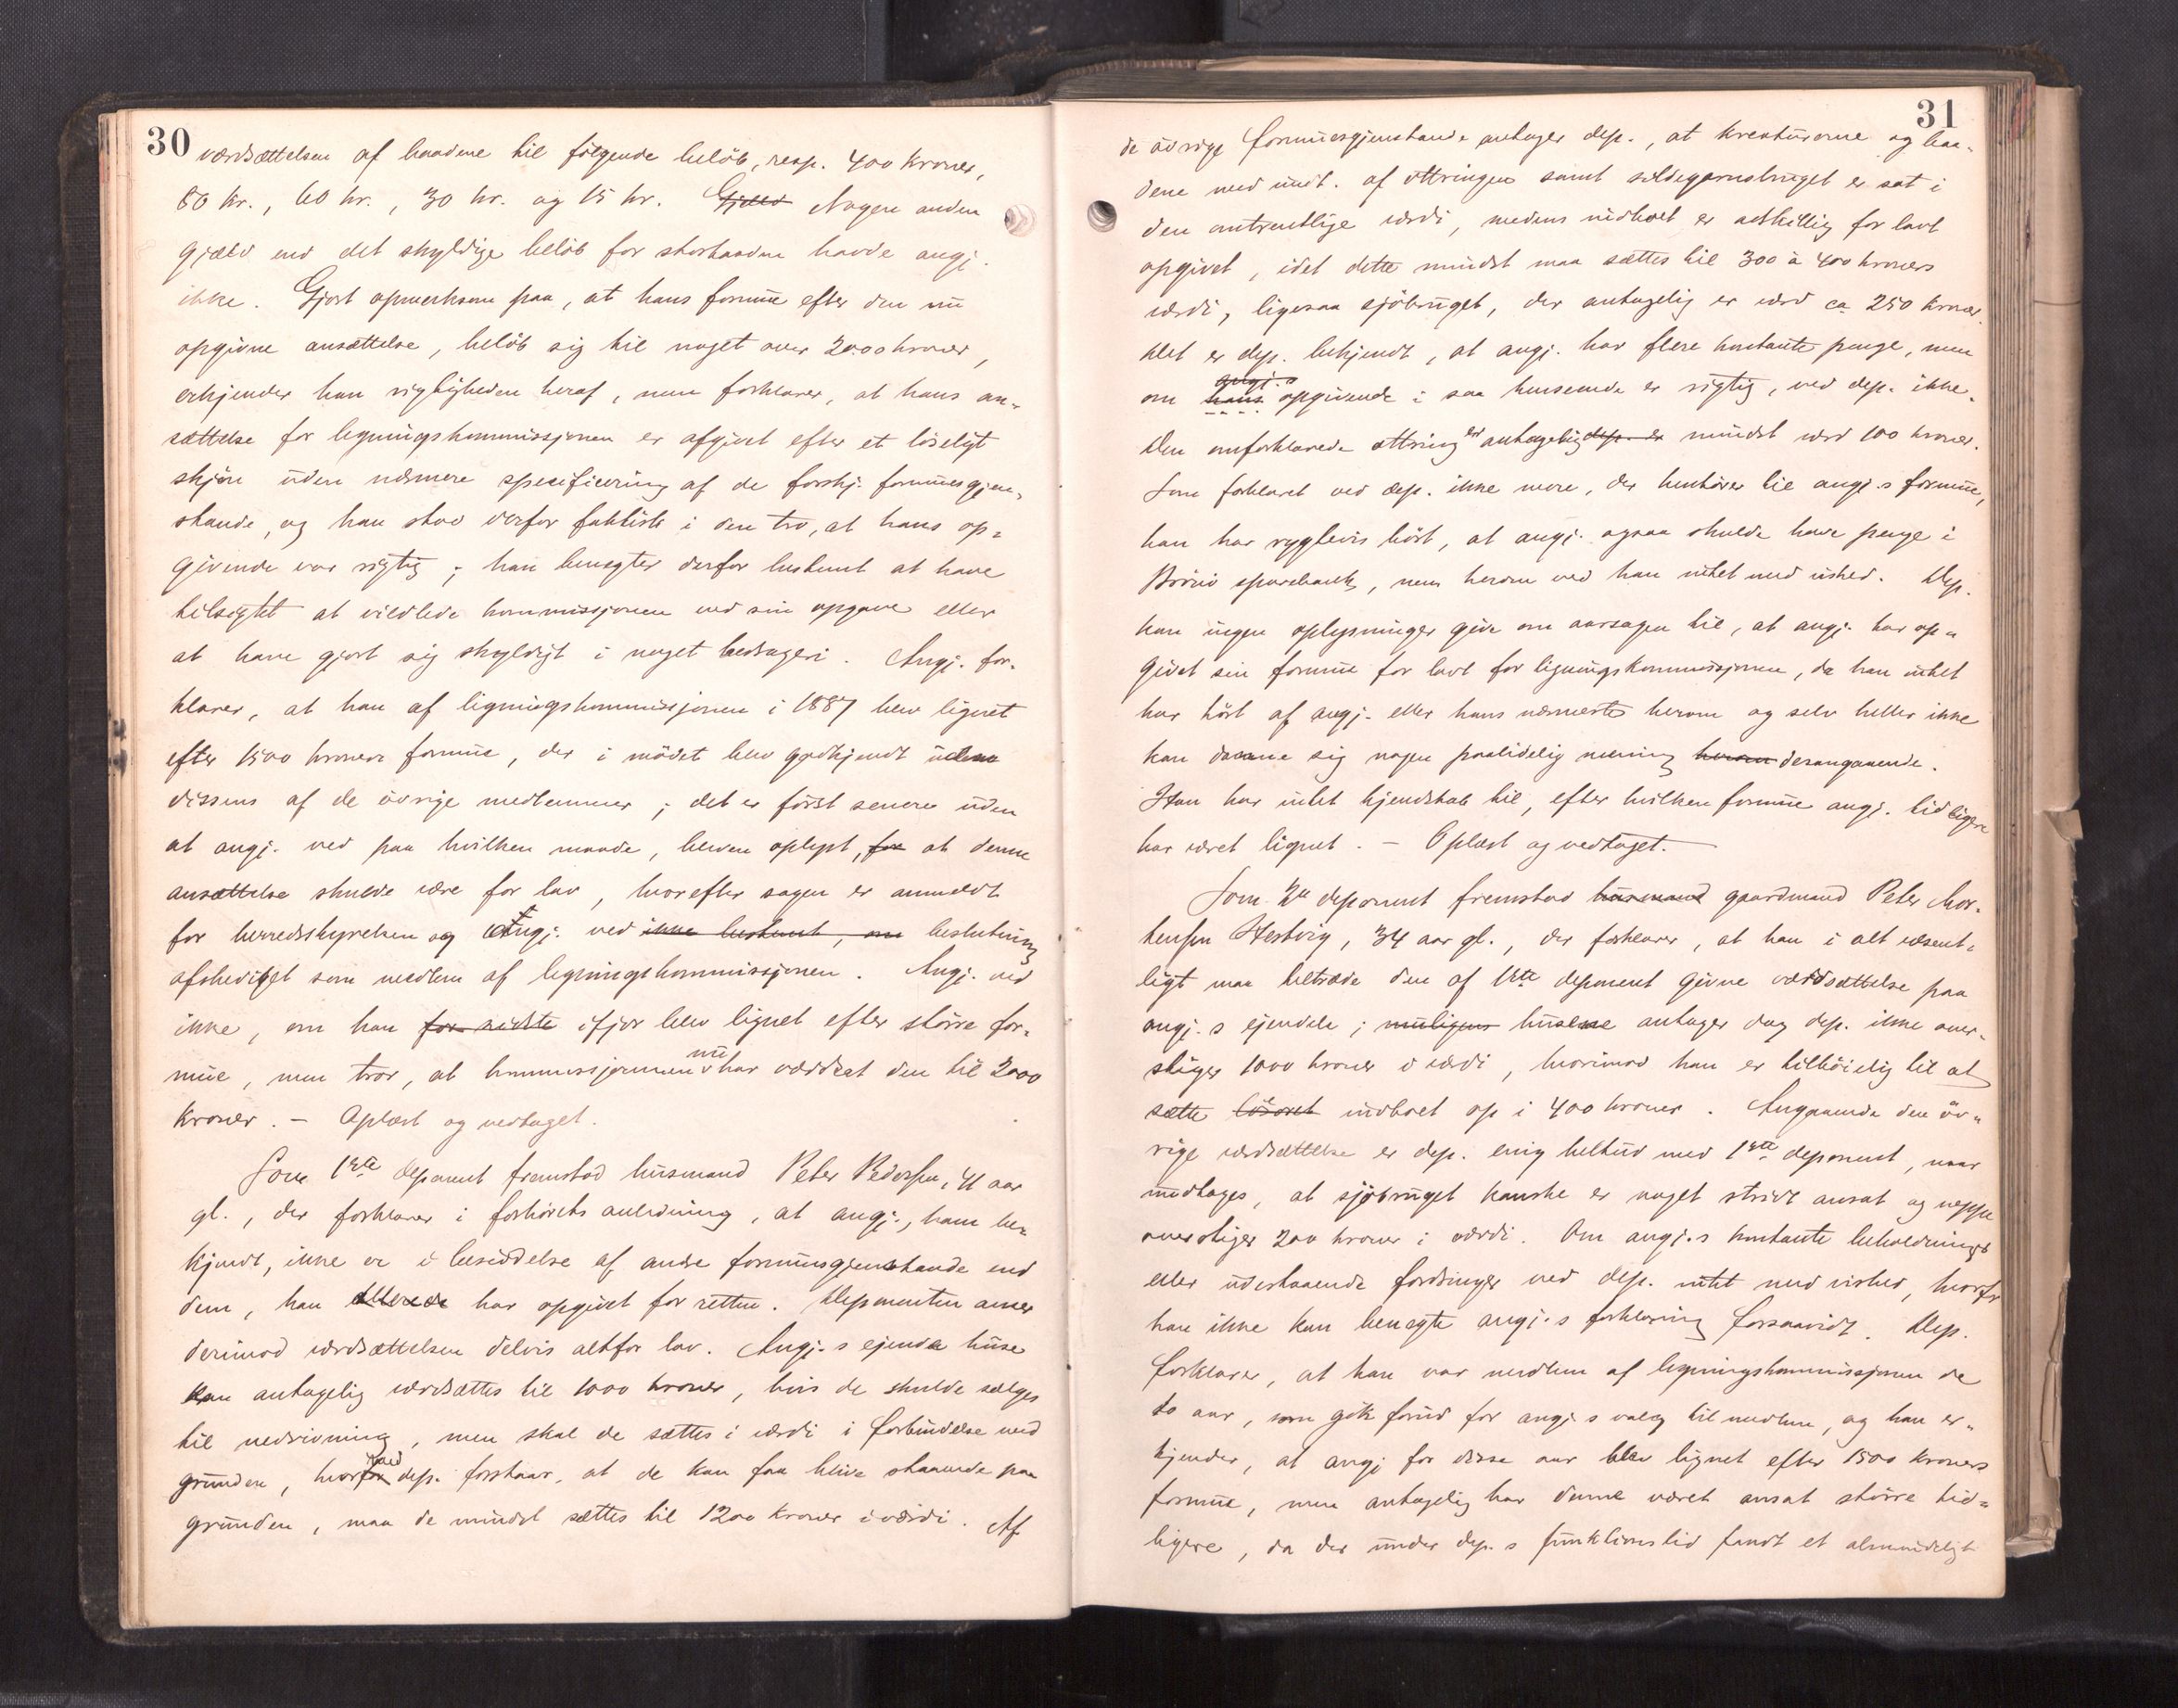 30
værdsættelsen af baadene til følgende beløb, resp. 400 kroner,
80 kr., 60 kr., 30 kr. og 15 kr. Gjæld Nogen anden
gjæld end det skyldige beløb for storbaaden havde angj.
ikke. Gjort opmerksom paa, at hans formue efter den nu
opgivne ansættelse, beløb sig til noget over 2000 kroner,
erkjender han rigtigheden heraf, men forklarer, at hans an-
sættelse for ligningskommissjonen er afgivet efter et løseligt
skjøn uden nærmere specificering af de forskj. formuesgjen-
stande, og han stod derfor faktisk i den tro, at hans op-
givende var rigtig; han benegter derfor bestemt at have
tilsigtet at vildlede kommissjonen ved sin opgave eller
at have gjort sig skyldigt i noget bedrageri. Angj. for-
klarer, at han af ligningskommissjonen i 1887 blev lignet
efter 1500 kroners formue, der i mødet blev godkjendt uden
dissens af de øvrige medlemmer; det er først senere uden
at angj. ved paa hvilken maade, bleven oplyst, for at denne
ansættelse skulde være for lav, hvorefter sagen er anmeldt
for herredsstyrelsen og angj. ved ikke bestemt, om beslutning
afskediget som medlem af ligningskommissjonen. Angj. ved
ikke, om han for sidste ifjor blev lignet efter større for-
mue, men tror, at kommissjonen nu har værdsat den til 2000
kroner. – Oplæst og vedtaget.
Som 1ste deponent fremstod husmand Peter Pedersen, 41 aar
gl., der forklarer i forhørets anledning, at angj., ham be-
kjendt, ikke er i besiddelse af andre formuesgjenstande end
dem, han allerede har opgivet for retten. Deponenten anser
derimod værdsættelsen delvis altfor lav. Angj.s ejende huse
kan antagelig værdsættes til 1000 kroner, hvis de skulde sælges
til nedrivning, men skal de sættes i værdi i forbindelse med
grunden, hvorfor ved dep. forstaar, at de kan faa blive staaende paa
grunden, maa de mindst sættes til 1200 kroner i værdi. Af
31
de øvrige formuesgjenstande antager dep., at kreaturerne og baa-
dene med undt. af ottringen samt sildegarnsbruget er sat i
den omtrentlige værdi, medens indboet er adskillig for lavt
opgivet, idet dette mindst maa sættes til 300 à 400 kroners
værdi, ligesaa sjøbruget, der antagelig er værd ca 250 kroner.
Det er dep. bekjendt, at angj. har flere kontante penge, men
om hans angj.s opgivende i saa henseende er rigtig, ved dep. ikke.
Den omforklarede ottring er antagelig dep. er mindst værd 100 kroner.
Som forklaret ved dep. ikke mere, der henhører til angj.s formue,
han har rygtevis hørt, at angj. ogsaa skulde have penge i
Brønø sparebank, men herom ved han intet med vished. Dep.
kan ingen oplysninger give om aarsagen til, at angj. har op-
givet sin formue for lavt for ligningskommissjonen, da han intet
har hørt af angj. eller hans nærmeste herom og selv heller ikke
kan danne sig nogen paalidelig mening herom desangaaende.
Han har intet kjendskab til, efter hvilken formue angj. tidligere
har været lignet. – Oplæst og vedtaget.
Som 2de deponent fremstod husmand gaardmand Peter Mor-
tensen Hestvig, 34 aar gl., der forklarer, at han i alt væsent-
ligt maa tiltræde den af 1ste deponent givne værdsættelse paa
angj.s ejendele; muligens husene antager dog dep. ikke over-
stiger 1000 kroner i værdi, hvorimod han er tilbøielig til at
sætte løsøret indboet op i 400 kroner. Angaaende den øv-
rige værdsættelse er dep. enig heltud med 1ste deponent, naar
undtages, at sjøbruget kanske er noget stridt ansat og neppe
overstiger 200 kroner i værdi. Om angj.s kontante beholdninger
eller udestaaende fordringer ved dep. intet med vished, hvorfor
han ikke kan benegte angj.s forklaring forsaavidt. Dep.
forklarer, at han var medlem af ligningskommissjonen de
to aar, som gik forud for angj.s valg til medlem, og han er-
kjender, at angj for disse aar blev lignet efter 1500 kroners
formue, men antagelig har denne været ansat større tid-
ligere, da der under dep.s funktionstid fandt et almindeligt